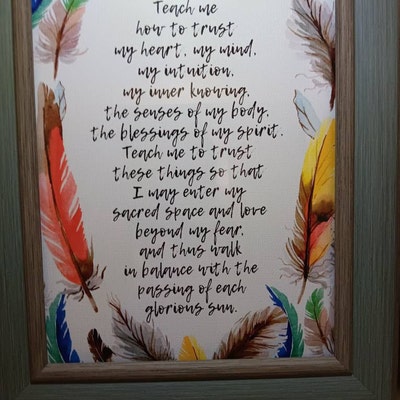 Teach me
how to trust
my heart, my mind,
my intuition,
my inner knowing,
the senses of my body,
the blessings of my spirit.
Teach me to trust
these things so that
I may enter my
sacred space and love
beyond my fear,
and thus walk
in balance with the
passing of each
glorious sun.